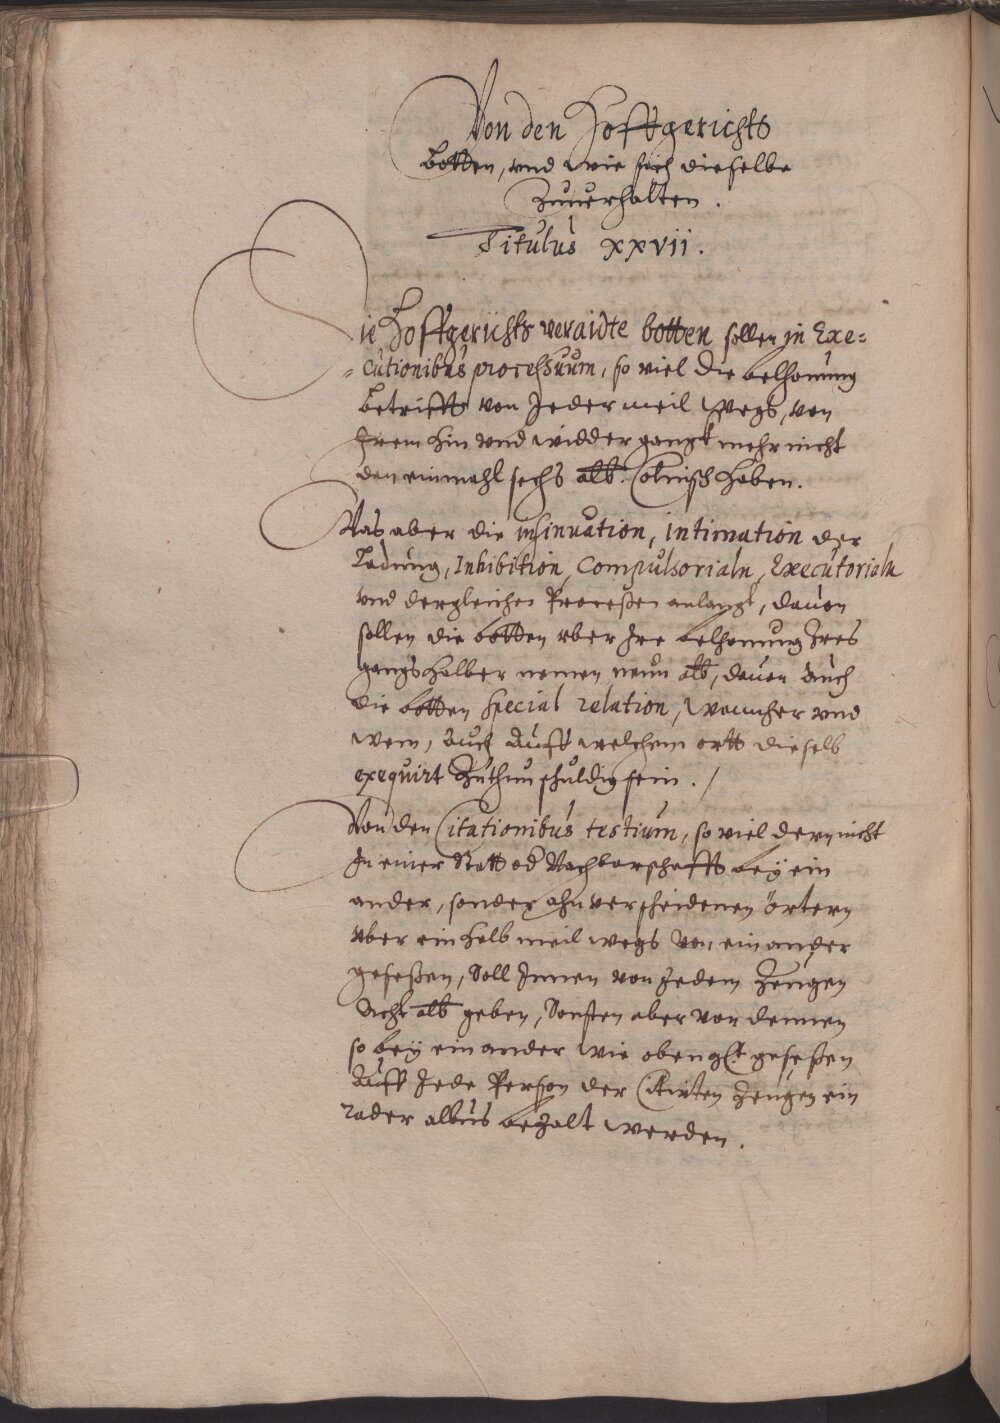 Von den Hoffgerichts
botten, vnd wie sich dieselbe
zuuerhalten.
Titulus xxvii.
Die Hoffgerichts veraidte botten sollen in Exe=
=cutionibus processuum, so viel die belhonung
betrifft von Jeder meil wegs, von
Irem hin vnd widder gangk mehr nicht
den einmahl sechs alb. Colnisch haben.
Was aber die insinuation, intimation der
Ladung, Inhibition, Compulsorialn, Executorialn
vnd dergleichen Proceßen anlangt, dauon
sollen die botten vber Ire belhonung Ires
gangs halber nemen neun alb, dauon auch
die botten special relation, wanneher vnd
wem, auch auff welchem ortt dieselb
exequirt zuthun schuldig sein. /
Von den Citationibus testium, so viel dern nicht
In einer Statt od Nachbarschafft bey ein
ander, sonder ahn verscheidenen örtern
vber ein halb meil wegs von einander
geseßen, Soll Innen von Jedem Zeugen
Acht alb geben, Sonsten aber von dennen
so bey einander wie obengt. geseßen
Auff Jede Person der Citirten Zeugen ein
rader albus bezalt werden.